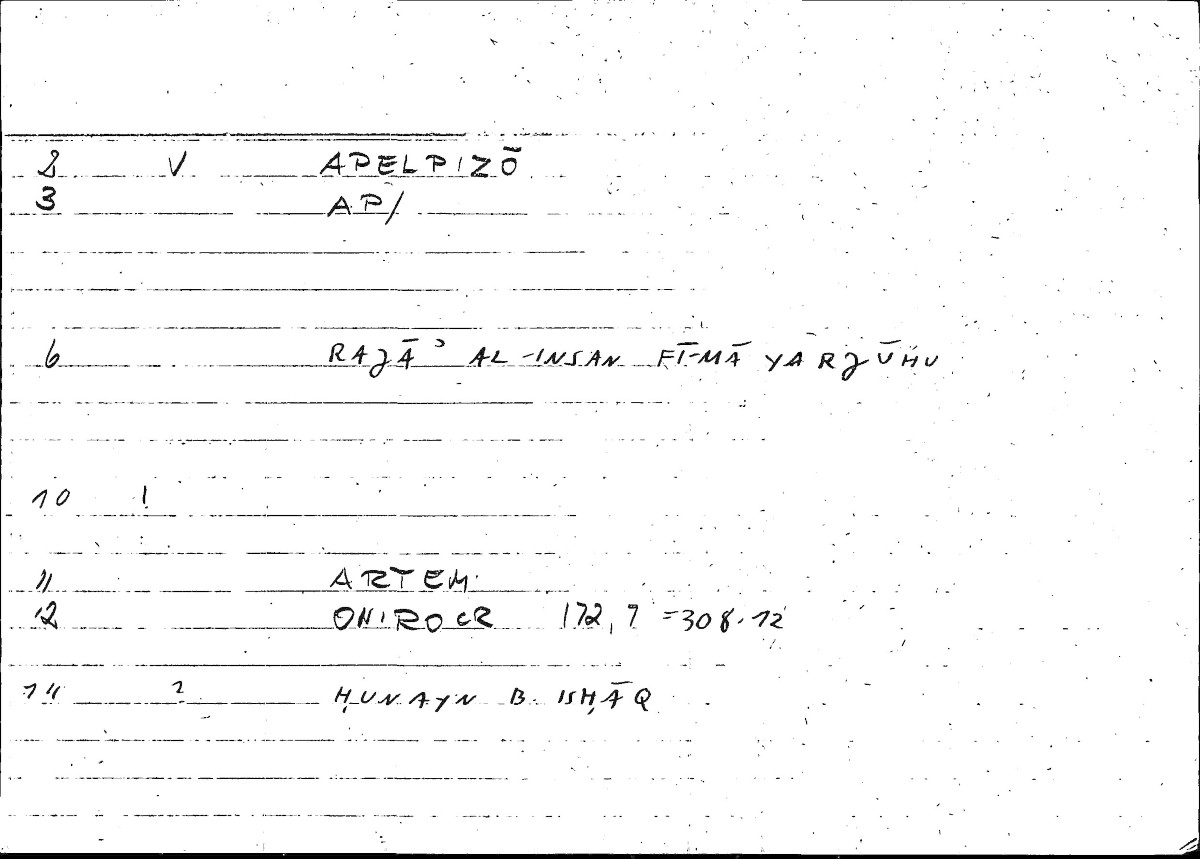 2 V APELPIZŌ
3 AP/
6 RAJĀʾ AL-INSAN FĪ-MĀ YARJŪHU
10 !
11 ARTEM.
12 ONIROCR 172,7 =308.12
14 ? ḤUNAYN B. ISḤĀQ